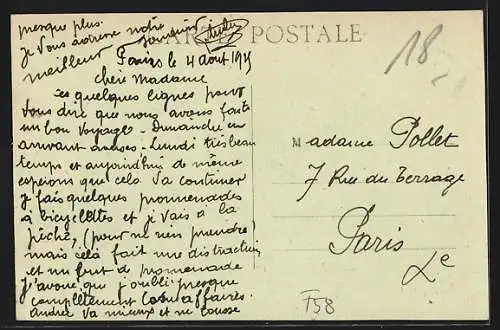 presque plus.
je vous adresse notre
meilleur souvenir
CARTE POSTALE
18
le 4 aout
chère Madame
Ces quelques lignes pour
vous dire que nous avons fait
un bon voyage - Dimanche en
arrivant - Lundi très beau
temps et aujourd'hui de même
espérons que cela va continuer
je fais quelques promenades
à bicyclette et je vais à la
pêche, (pour ne rien prendre)
mais celà fait une distraction
et un but de promenade
j'avoue que j'oublie presque
complètement
André va mieux et ne tousse
Madame Pollet
7 Rue du Terrage
Paris
Xe
T58